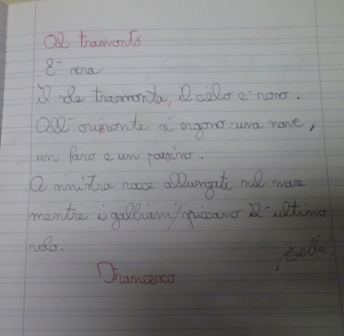 Al tramonto
E' sera
il sole tramonta, il cielo è nero.
All' orizzonte si ergono una nave,
un faro e un paesino.
A sinistra rocce allungate nel mare
mentre i gabbiani spiccano il ultimo
volo.
Bello!
Francesco